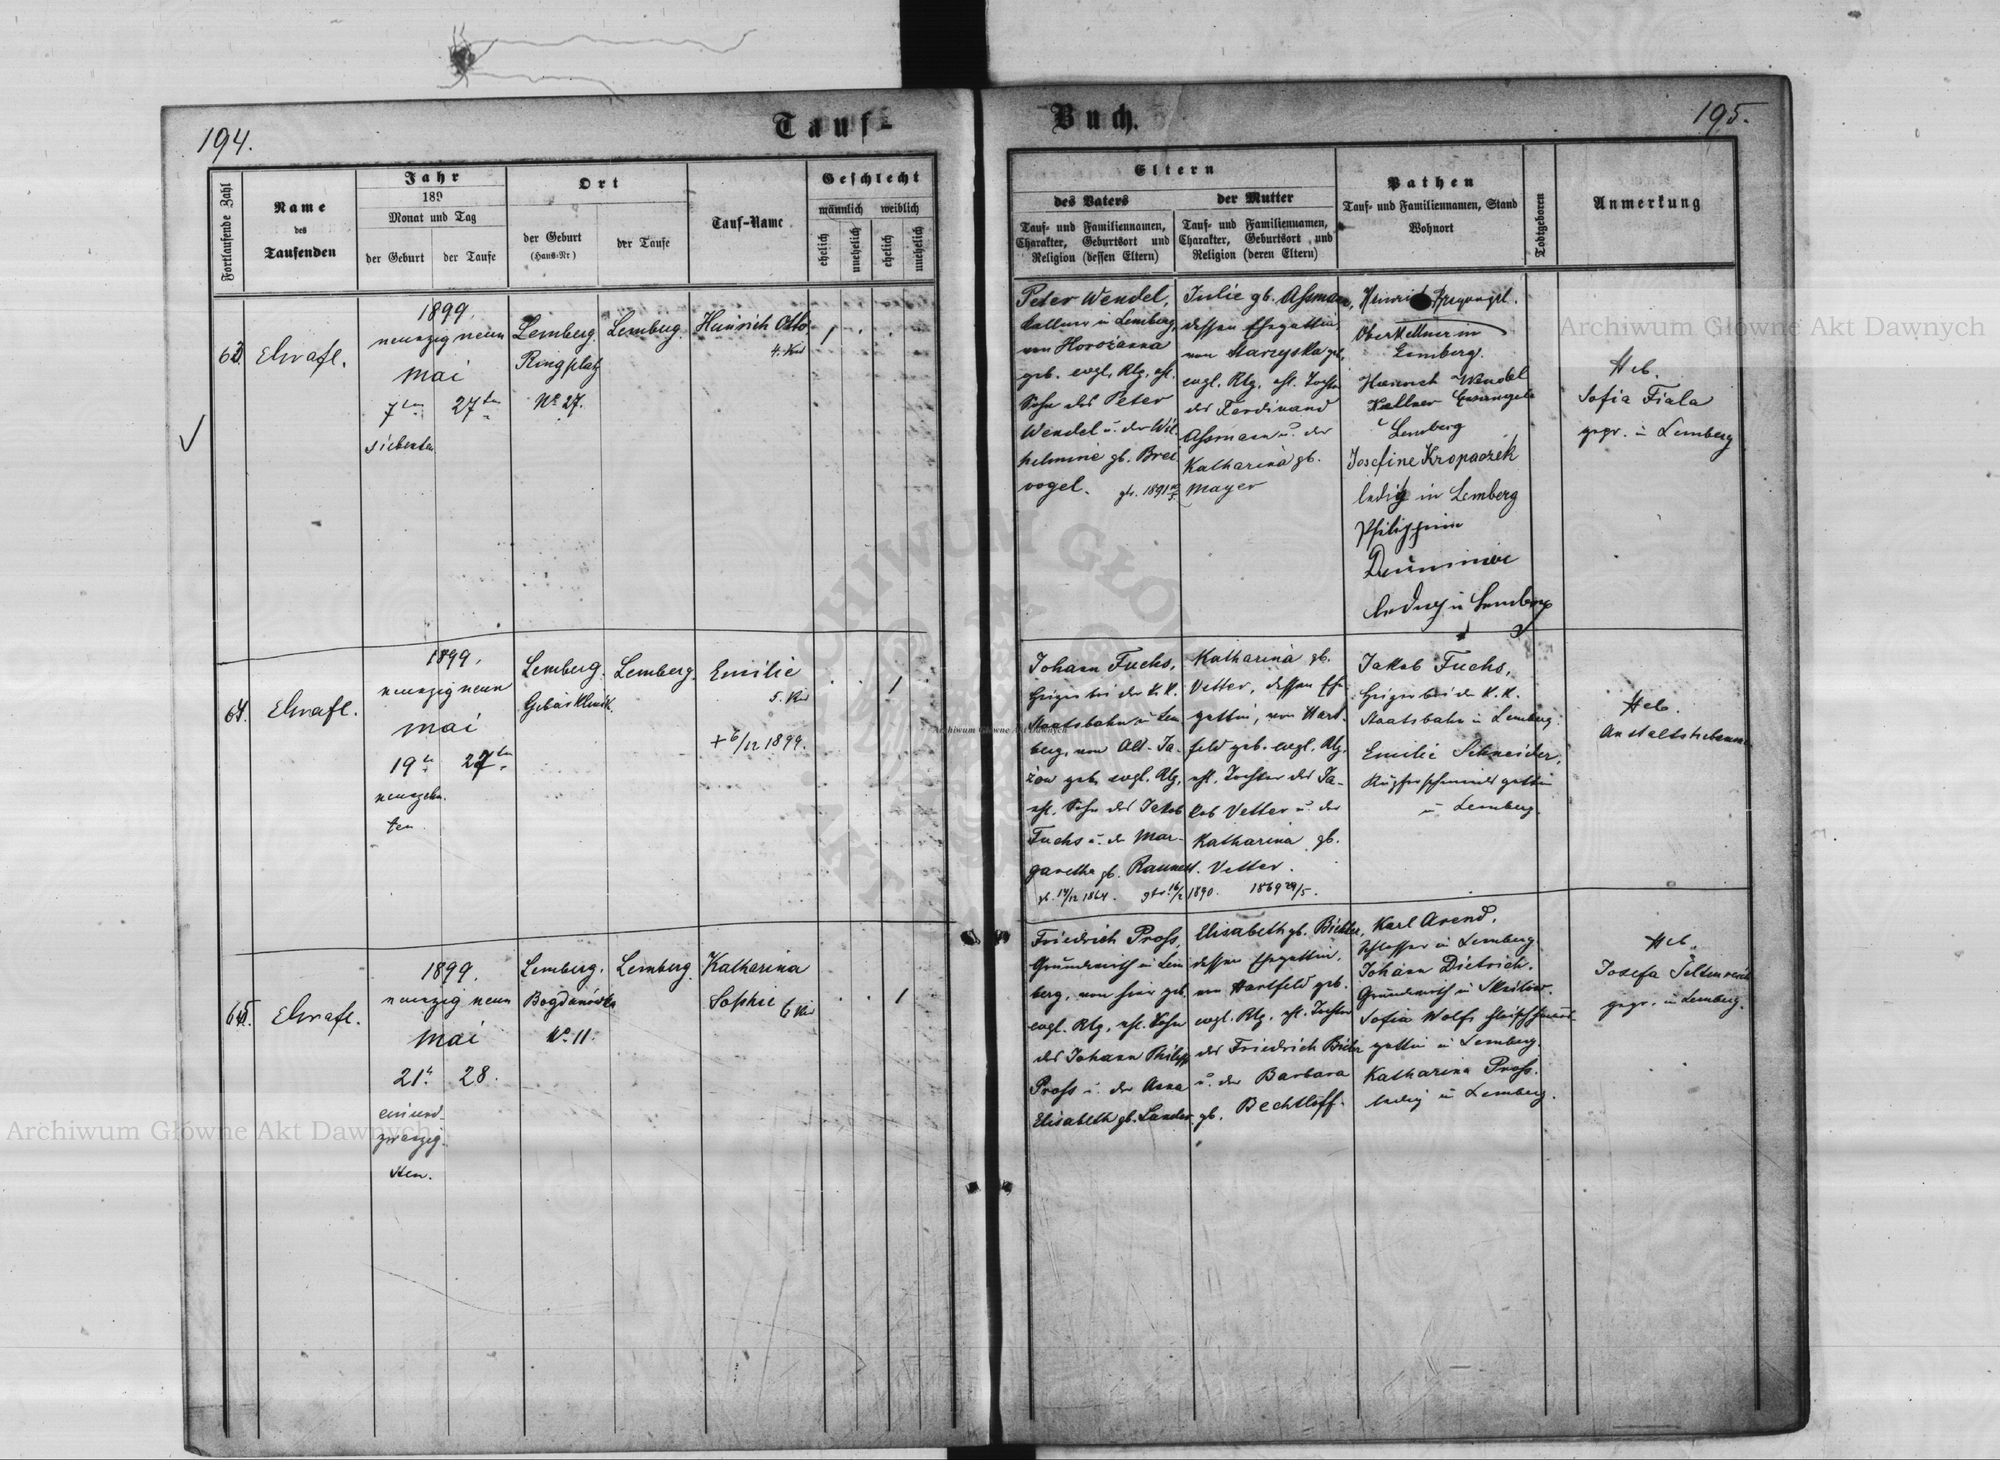 194.
Tauf-
Buch.
195.
Fortlaufende Zahl
Name
des
Taufenden
Jahr
189
Monat und Tag
der Geburt
der Taufe
Ort
der Geburt
(Haus-Nr)
der Taufe
Tauf-Name
Geschlecht
männlich
weiblich
ehelich
unehelich
ehelich
unehelich
Eltern
des Vaters
Tauf- und Familiennamen,
Charakter, Geburtsort und
Religion (dessen Eltern)
der Mutter
Tauf- und Familiennamen,
Charakter, Geburtsort und
Religion (deren Eltern)
Pathen
Tauf- und Familiennamen, Stand
Wohnort
Todtgeboren
Anmerkung
63.
1899.
neunzig neun
Mai
7ten
27ten
siebenten
Lemberg.
Ringplatz
No 27.
Lemberg.
Heinrich Otto
4. Kind
1
Peter Wendel,
Kellner in Lemberg,
von Horożanna
geb. evgl. Rlg. ehl.
Sohn des Peter
Wendel u. der Wil-
helmine gb. Brei
vogel.
Julie gb. Assmann,
dessen Ehegattin,
von
evgl. Rlg. ehl. Tochter
des Ferdinand
Assmann u. der
Katharina gb.
Mayer
Heinrich
Oberkellner in
Lemberg.
Heinrich Wendel
Kellner
Lemberg
Josefine Kropaczek
ledig in Lemberg
ledig in Lemberg
Heb.
Sofia Fiala
gepr. in Lemberg
64.
1899.
neunzig neun
Mai
19n
27ten
neunzehn-
ten
Lemberg.
Gebärklinik.
Lemberg.
Emilie
5. Kind
+ 6/12 1899.
1
Johann Fuchs,
Heizer bei der K.K.
Staatsbahn in Lem
berg, von Alt-Ja-
żow geb. evgl. Rlg.
ehl. Sohn des Jakob
Fuchs u. der Mar-
garetha gb.
gb. 14/12 1864.
Katharina gb.
Vetter, dessen Ehe
gattin, von Hart-
feld geb. evgl. Rlg.
ehl. Tochter des Ja-
kob Vetter u. der
Katharina gb.
Vetter.
gtr. 16/2 1890. 1869 29/5.
Jakob Fuchs,
Heizer bei der K.K.
Staatsbahn in Lemberg.
Emilie Schneider,
Kupferschmieds gattin
in Lemberg.
Heb.
Anstaltshebamme
65.
1899.
neunzig neun
Mai
21n
28.
einund
zwanzig
sten.
Lemberg.
Bogdanówka
No 11.
Lemberg.
Katharina
Sophie
6 Kind
1
Friedrich Pross,
Grundwirth in Lem
berg, von hier geb.
evgl. Rlg. ehl. Sohn
des Johann Philipp
Pross u. der Anna
Elisabeth gb. Lander.
Elisabeth gb.
dessen Ehegattin,
von Hartfeld geb.
evgl. Rlg. ehl. Tochter
des Friedrich
u. der Barbara
gb. Bechtloff.
Karl Arend,
Schlosser in Lemberg
Johann Dietrich,
Grundwirth in
Sofia Wolf,
gattin in Lemberg.
Katharina Pross.
ledig in Lemberg.
Heb.
Josefa
gepr. in Lemberg.
Archiwum Główne Akt Dawnych
Archiwum Główne Akt Dawnych
Archiwum Główne Akt Dawnych